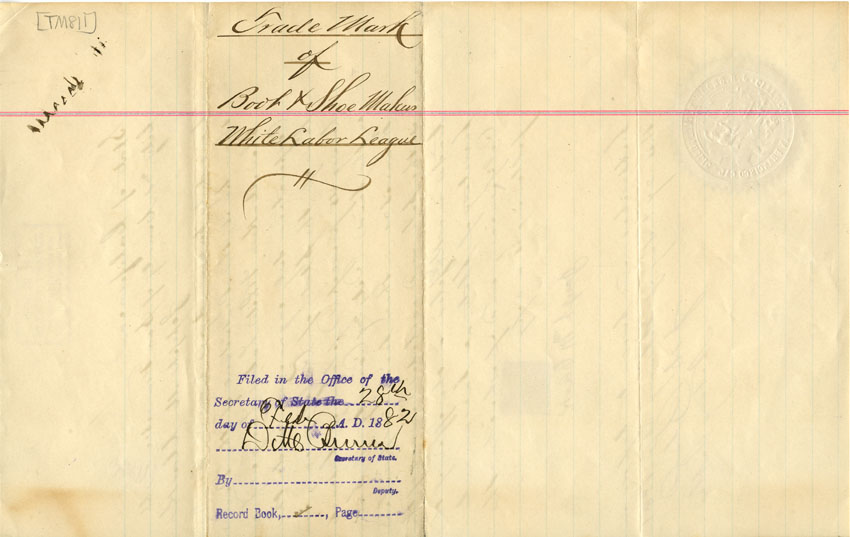 [TM811]
Trade Mark
of
Boot & Shoe Makers
White Labor League
Filed in the Office of the
Secretary of State the 28th
day of Feb A. D. 1882
Secretary of State.
By
Deputy.
Record Book, , Page